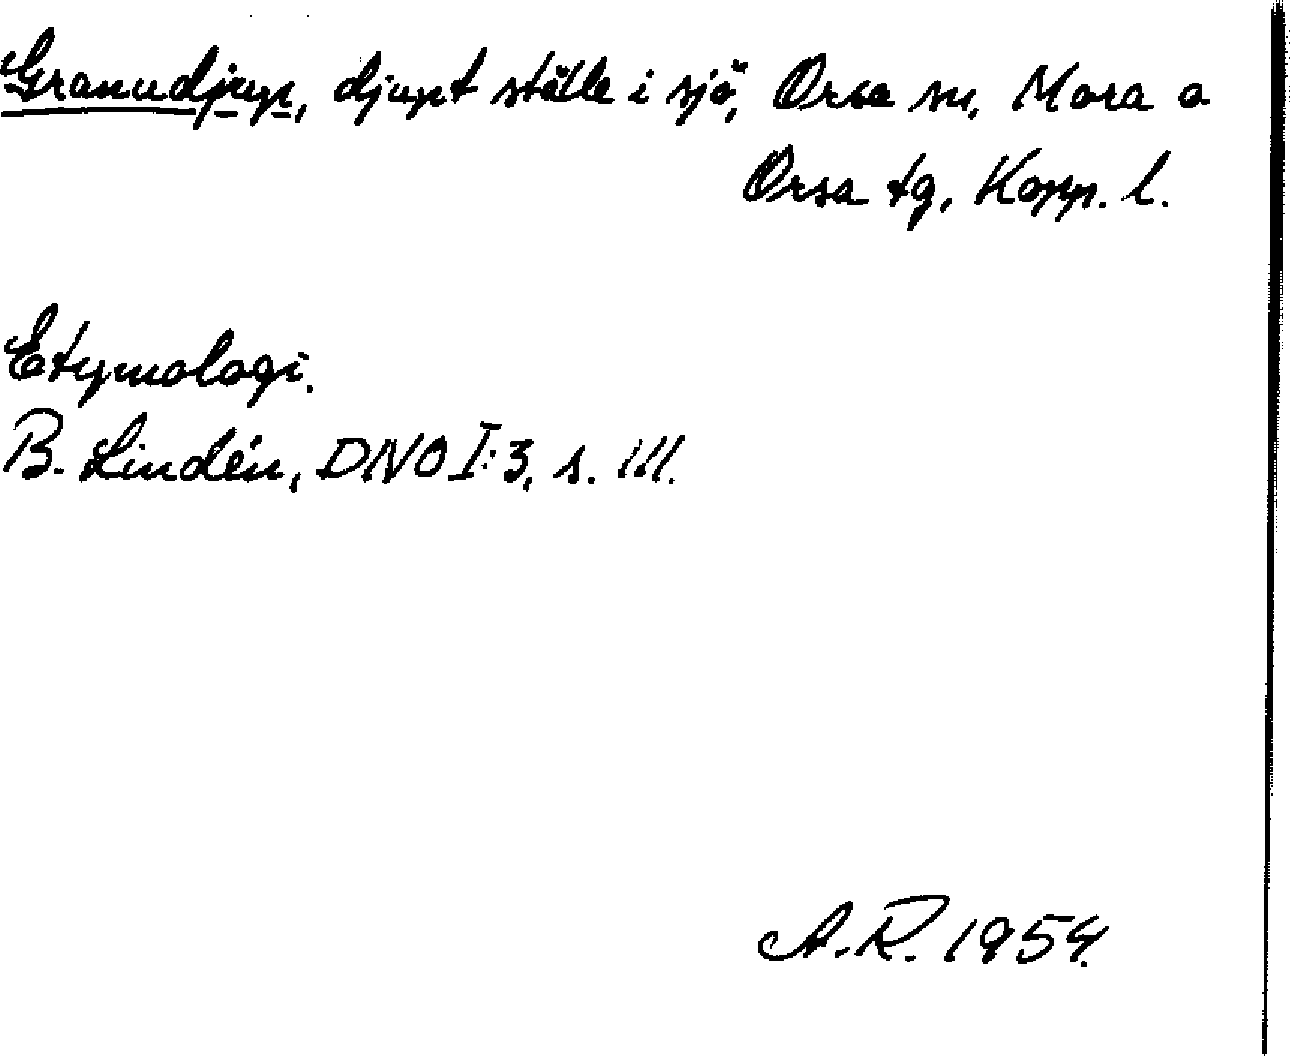 Granudjup, djupt ställe i sjö, Orsa sn, Mora o
Orsa tg, Kopp. l.
Etymologi.
B. Lindén, DNO I:3, s. 111.
A.R. 1954.